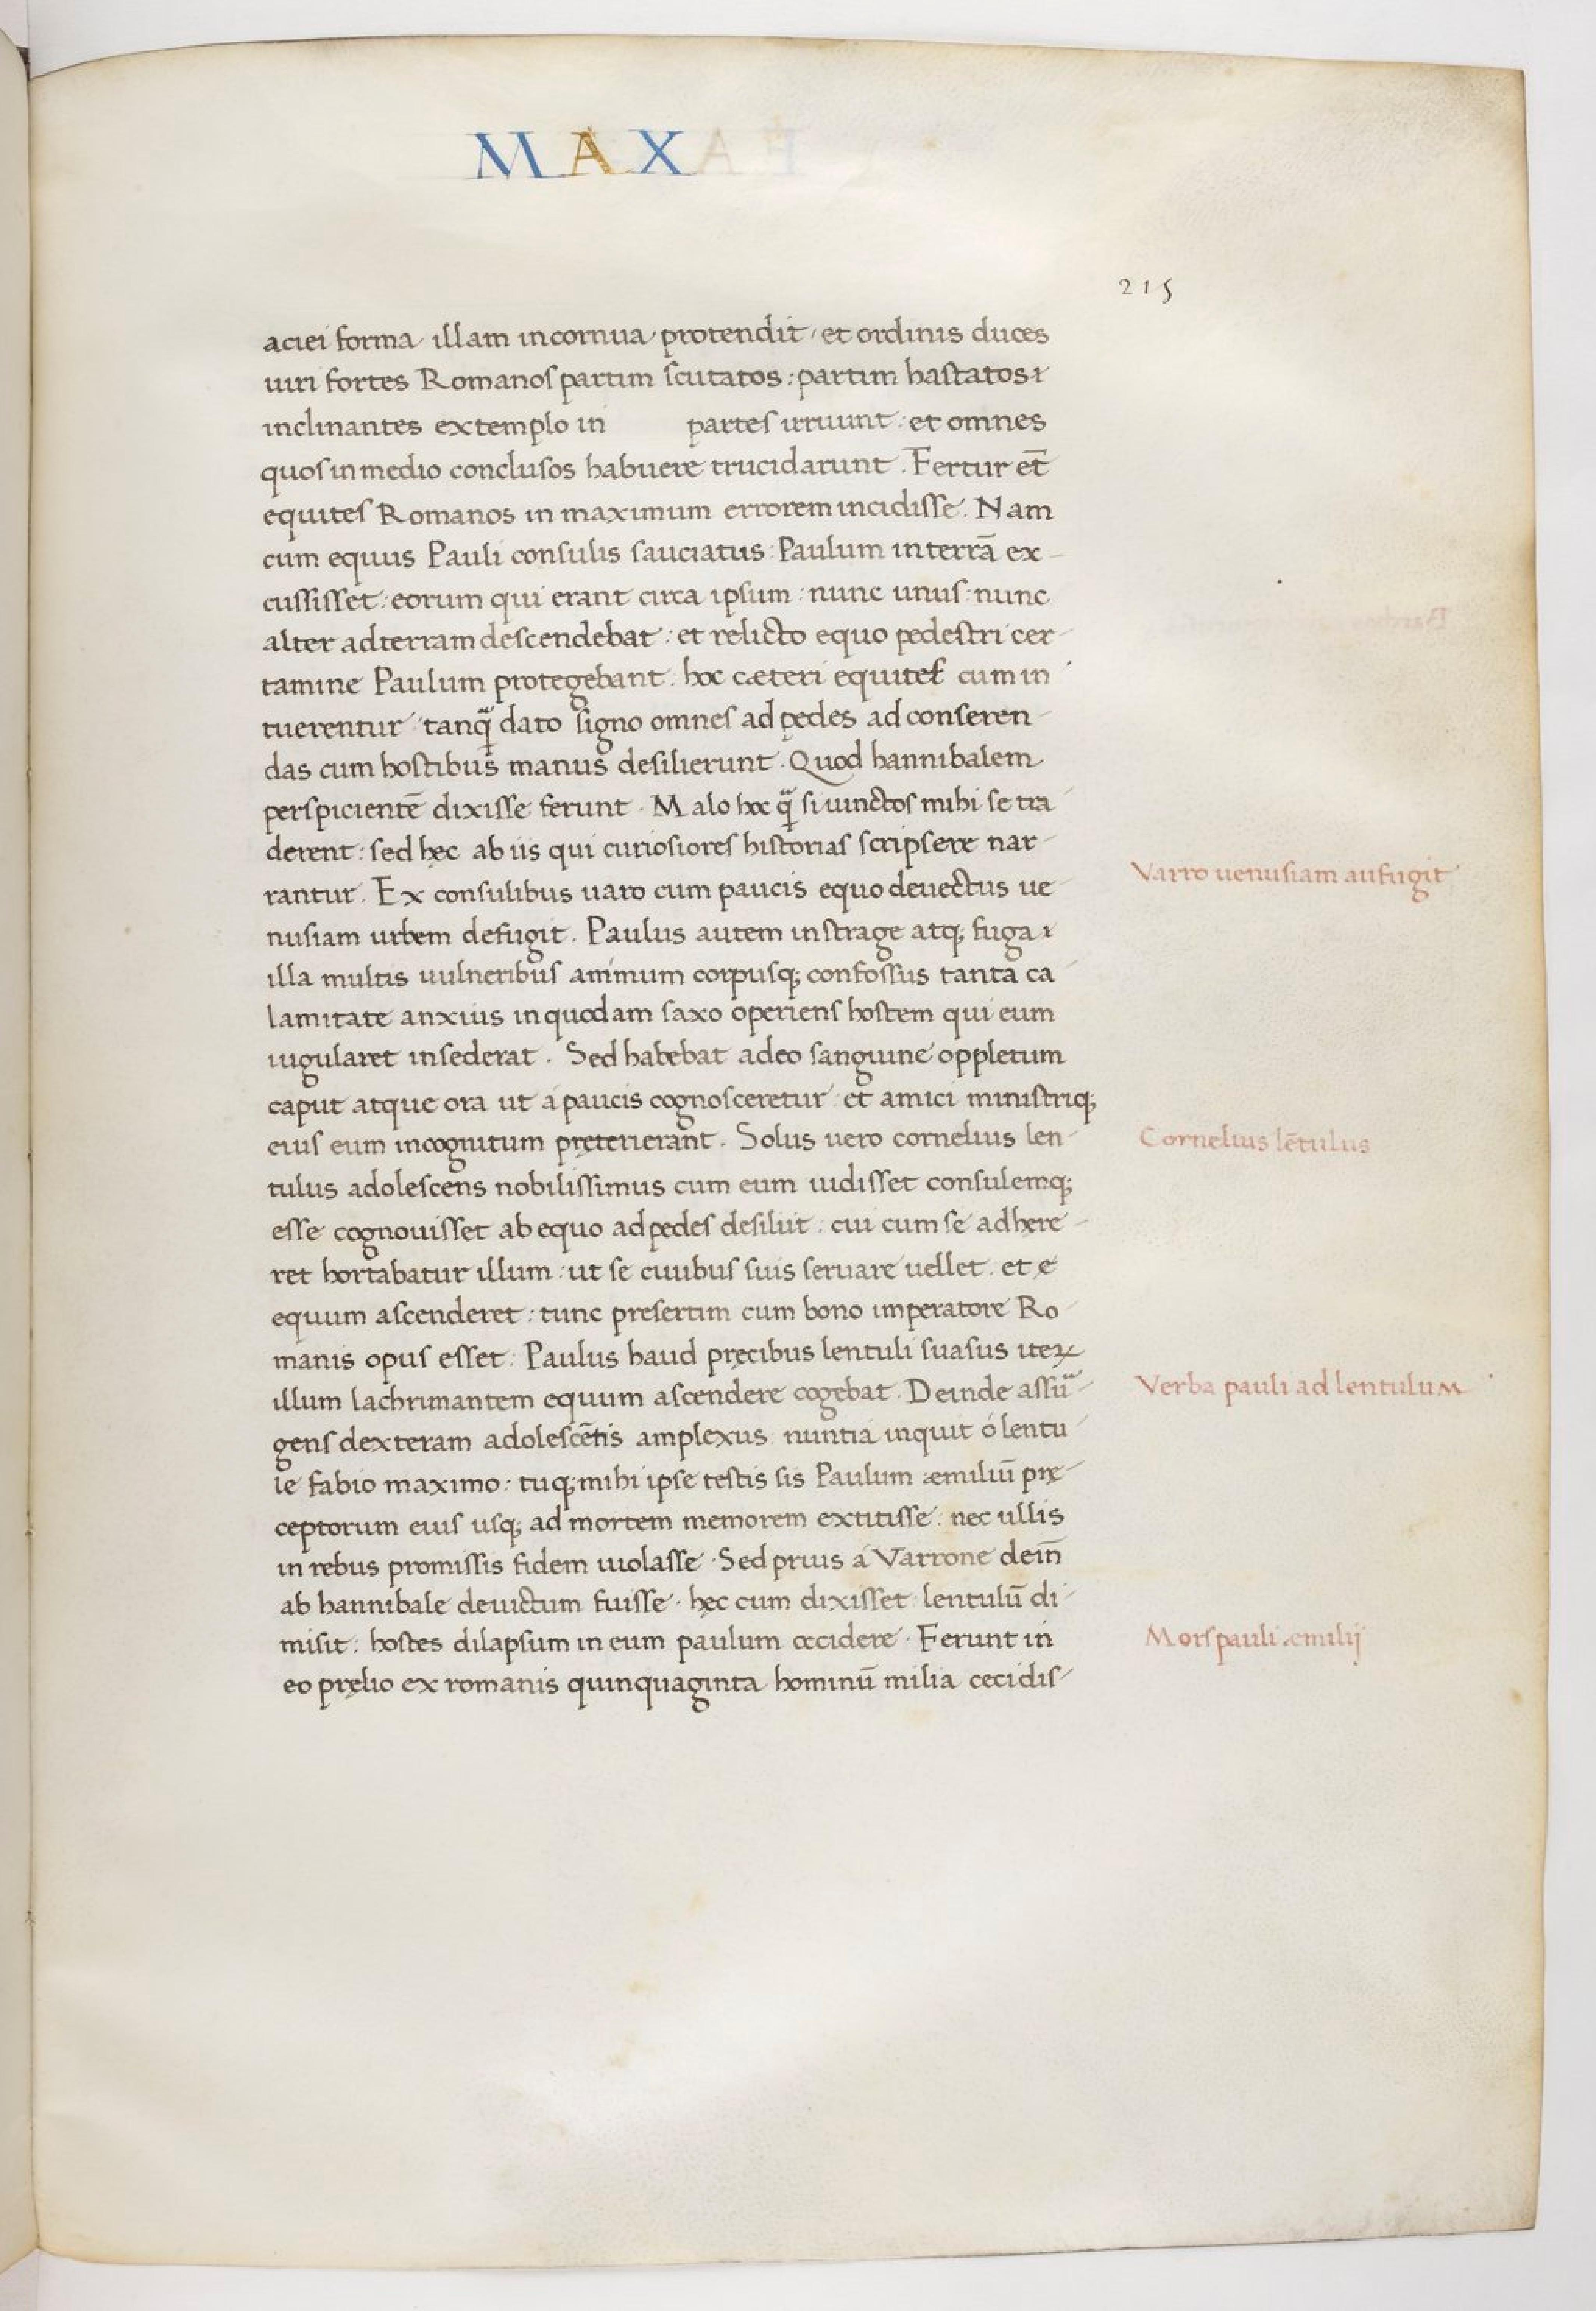 MAX
215
aciei forma illam in cornua protendit, et ordinis duces
uiri fortes Romanos partim scutatos: partim hastatos
inclinantes extemplo in partes irruunt: et omnes
quos in medio conclusos habuere trucidarunt. Fertur et̄
equites Romanos in maximum errorem incidisse. Nam
cum equus Pauli consulis sauciatus: Paulum in terrā ex-
cussisset: eorum qui erant circa ipsum: nunc unus: nunc
alter ad terram descendebat: et relicto equo pedestri cer-
tamine Paulum protegebant. hoc cæteri equites cum in
tuerentur tanq̃ dato signo omnes ad pedes ad conseren-
das cum hostibus manus desilierunt. Quod hannibalem
perspicientē dixisse ferunt. Malo hoc q̃ si uinctos mihi se tra-
derent: sed hęc ab iis qui curiosiores historias scripsere nar-
rantur. Ex consulibus uaro cum paucis equo deuectus ue-
Varro uenusiam aufugit
nusiam urbem defugit. Paulus autem in strage atq; fuga
illa multis uulneribus animum corpusq; confossus tanta ca-
lamitate anxius in quodam saxo operiens hostem qui eum
iugularet insederat. Sed habebat adeo sanguine oppletum
caput atque ora ut á paucis cognosceretur et amici ministriq;
eius eum incognitum pręterierant. Solus uero cornelius len-
Cornelius lētulus
tulus adolescens nobilissimus cum eum uidisset consulemq;
esse cognouisset ab equo ad pedes desiluit: cui cum se adhere-
ret hortabatur illum: ut se ciuibus suis seruare uellet. et
equum ascenderet: tunc presertim cum bono imperatore Ro-
manis opus esset: Paulus haud pręcibus lentuli suasus iteꝝ
illum lachrimantem equum ascendere cogebat. Deinde assu-
Verba pauli ad lentulum
gens dexteram adolescētis amplexus nuntia inquit ó lentu-
le fabio maximo: tuq; mihi ipse testis sis Paulum æmiliū prę-
ceptorum eius usq; ad mortem memorem extitisse: nec ullis
in rebus promissis fidem uiolasse. Sed prius á Varrone dein̄
ab hannibale deuictum fuisse. hęc cum dixisset lentulū di-
misit: hostes dilapsum in eum paulum occidere. Ferunt in
Mors pauli æmilij
eo pręlio ex romanis quinquaginta hominū milia cecidis-